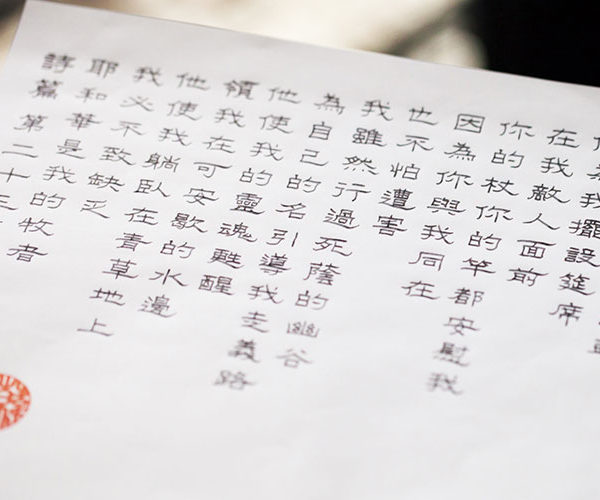 詩篇第二十三
耶和華是我的牧者
我必不致缺乏
他使我躺臥在青草地上
領我在可安歇的水邊
他使我的靈魂甦醒
為自己的名引導我走義路
我雖然行過死蔭的幽谷
也不怕遭害
因為你與我同在
你的杖你的竿都安慰我
在我敵人面前
為我擺設筵席